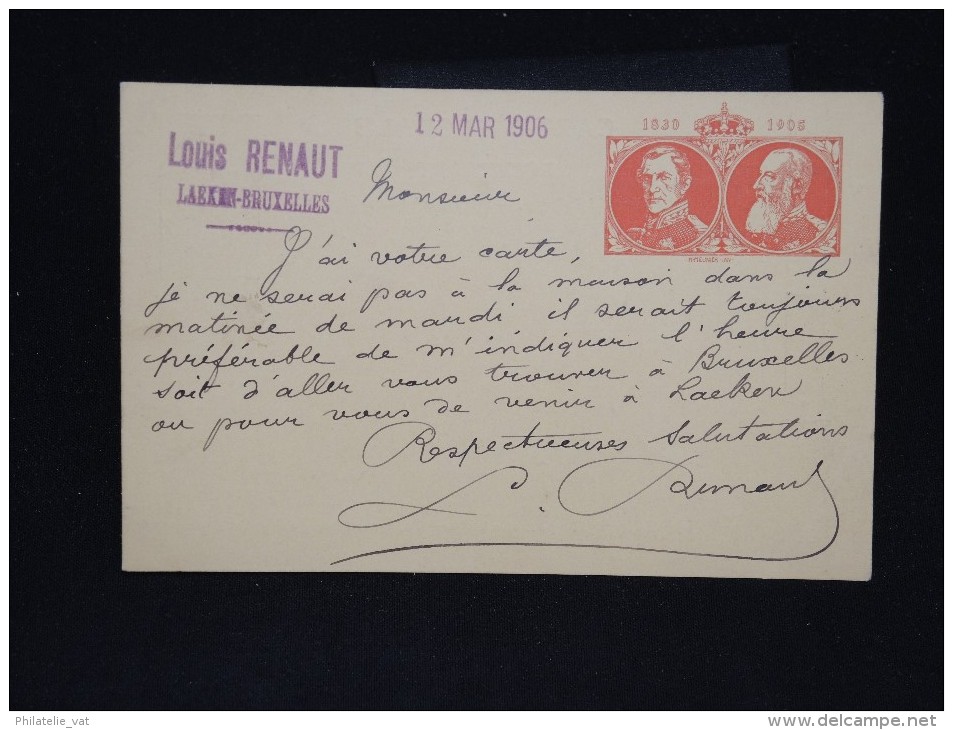 12 MAR 1906
1830 1905
Louis RENAUT
LAEKEN-BRUXELLES
Monsieur
J'ai votre carte,
je ne serai pas à la maison dans la
matinée de mardi il serait toujours
préférable de m'indiquer l'heure
soit d'aller vous trouver à Bruxelles
ou pour vous de venir à Laeken
Respectueuses Salutations
L. Renaut
Philatelie_vat
http://www.delcampe.net